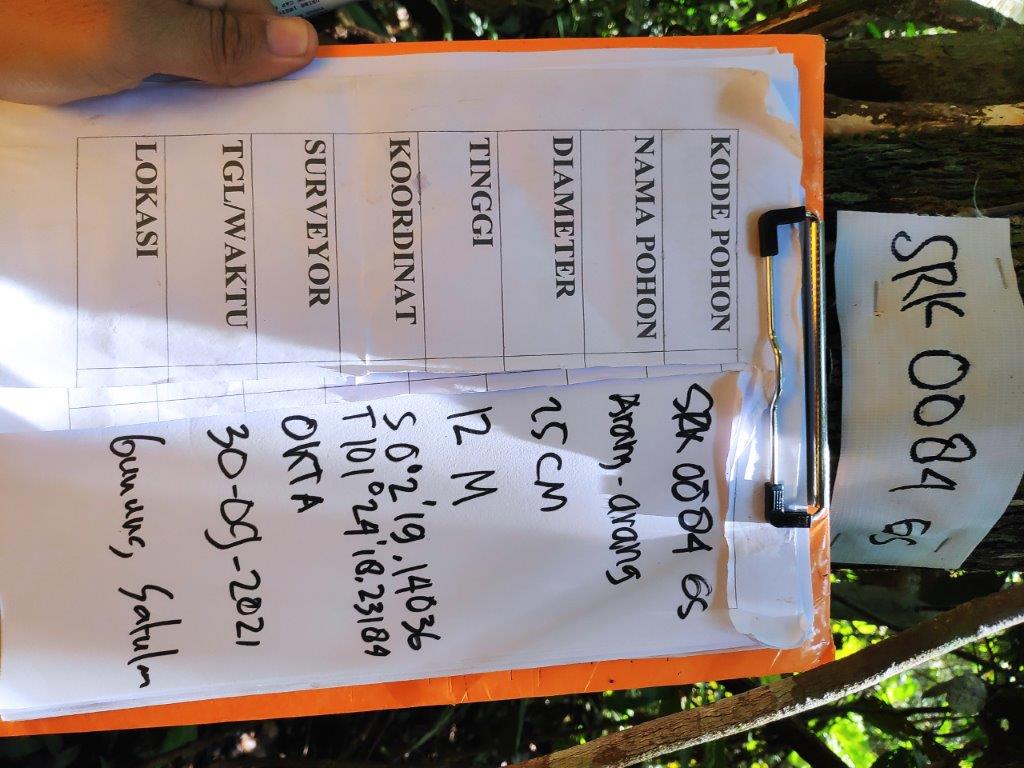 SRK 0084 GS
KODE POHON SRK 0084 GS
NAMA POHON Arang-arang
DIAMETER 25 CM
TINGGI 12 M
KOORDINAT S 0°2'19.14036
T 101°24'18.23184
SURVEYOR OKTA
TGL/WAKTU 30-05-2021
LOKASI Gunung,